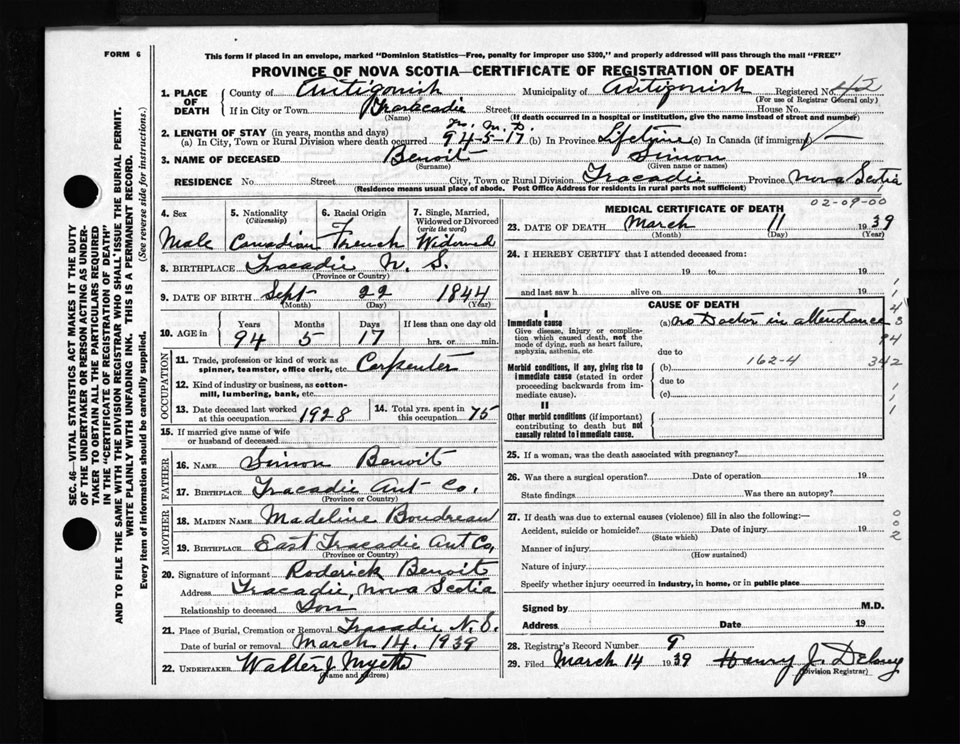 FORM 6
This form if placed in an envelope, marked "Dominion Statistics—Free, penalty for improper use $300," and properly addressed will pass through the mail "FREE"
PROVINCE OF NOVA SCOTIA—CERTIFICATE OF REGISTRATION OF DEATH
1. PLACE OF DEATH
County of Antigonish Municipality of Antigonish Registered No.
(For use of Registrar General only)
If in City or Town Tracadie Street House No.
(Name) (If death occurred in a hospital or institution, give the name instead of street and number)
2. LENGTH OF STAY (in years, months and days) Yr. M. D.
(a) In City, Town or Rural Division where death occurred 94-5-17 (b) In Province Lifetime (c) In Canada (if immigrant)
3. NAME OF DECEASED Benoit Simon
(Surname) (Given name or names)
RESIDENCE No. Street City, Town or Rural Division Tracadie Province Nova Scotia
(Residence means usual place of abode. Post Office Address for residents in rural parts not sufficient)
4. Sex
Male
5. Nationality
(Citizenship)
Canadian
6. Racial Origin
French
7. Single, Married, Widowed or Divorced
(write the word)
Widowed
8. BIRTHPLACE Tracadie N. S.
(Province or Country)
9. DATE OF BIRTH Sept 22 1844
(Month) (Day) (Year)
10. AGE in Years Months Days If less than one day old
94 5 17 hrs. or min.
OCCUPATION
11. Trade, profession or kind of work as spinner, teamster, office clerk, etc. Carpenter
12. Kind of industry or business, as cotton-mill, lumbering, bank, etc.
13. Date deceased last worked at this occupation 1928
14. Total yrs. spent in this occupation 75
15. If married give name of wife or husband of deceased
FATHER
16. NAME Simon Benoit
17. BIRTHPLACE Tracadie Ant Co.
(Province or Country)
MOTHER
18. MAIDEN NAME Madeline Boudreau
19. BIRTHPLACE East Tracadie Ant Co,
(Province or Country)
20. Signature of informant Roderick Benoit
Address Tracadie, Nova Scotia
Relationship to deceased Son
21. Place of Burial, Cremation or Removal Tracadie N.S.
Date of burial or removal March 14. 1939
22. UNDERTAKER Walter J Myette
(Name and address)
02-09-00
MEDICAL CERTIFICATE OF DEATH
23. DATE OF DEATH March 11 1939
(Month) (Day) (Year)
24. I HEREBY CERTIFY that I attended deceased from:
19 to 19
and last saw h alive on 19
CAUSE OF DEATH
I
Immediate cause (a) no Doctor in attendance
Give disease, injury or complication which caused death, not the mode of dying, such as heart failure, asphyxia, asthenia, etc.
due to
Morbid conditions, if any, giving rise to immediate cause (stated in order proceeding backwards from immediate cause).
(b) 162-4 342
due to
(c)
II
Other morbid conditions (if important) contributing to death but not causally related to immediate cause.
25. If a woman, was the death associated with pregnancy?
26. Was there a surgical operation? Date of operation 19
State findings Was there an autopsy?
27. If death was due to external causes (violence) fill in also the following:—
Accident, suicide or homicide? Date of injury 19
(State which)
Manner of injury
(How sustained)
Nature of injury
Specify whether injury occurred in industry, in home, or in public place
Signed by M.D.
Address Date 19
28. Registrar's Record Number 9
29. Filed March 14 1939 Henry J. Delorey
(Division Registrar)
SEC. 46—VITAL STATISTICS ACT MAKES IT THE DUTY
OF THE UNDERTAKER OR PERSON ACTING AS UNDER-
TAKER TO OBTAIN ALL THE PARTICULARS REQUIRED
IN THE "CERTIFICATE OF REGISTRATION OF DEATH"
AND TO FILE THE SAME WITH THE DIVISION REGISTRAR WHO SHALL ISSUE THE BURIAL PERMIT.
WRITE PLAINLY WITH UNFADING INK. THIS IS A PERMANENT RECORD.
Every item of information should be carefully supplied. (See reverse side for instructions.)